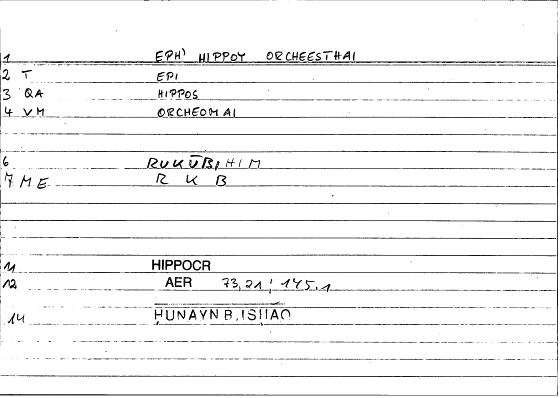 1 EPH' HIPPOY ORCHEESTHAI
2 T EPI
3 QA HIPPOS
4 VM ORCHEOMAI
6 RUKŪBIHIM
7 ME R K B
11 HIPPOCR
12 AER 73,21 ; 145.1
14 ḤUNAYN B. ISḤAQ